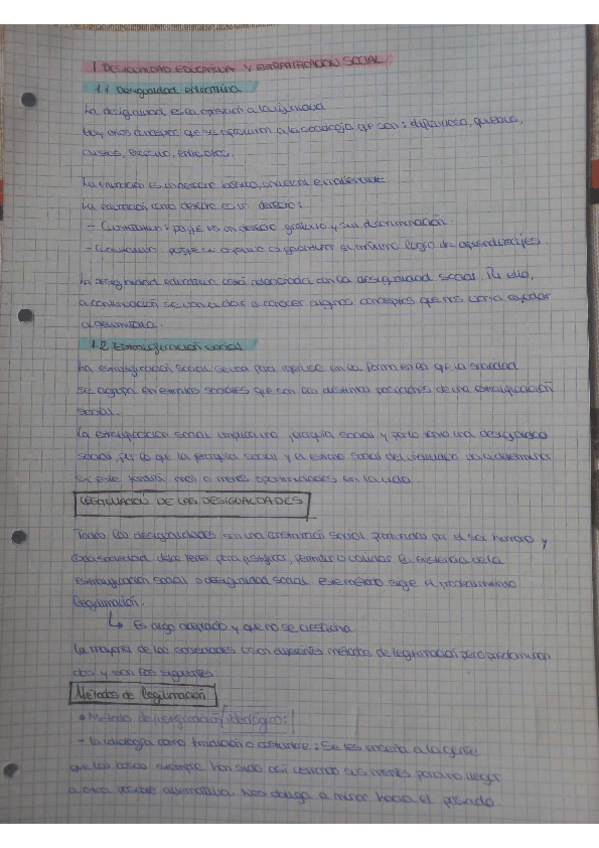 1 DESIGUALDAD EDUCATIVA Y ESTRATIFICACIÓN SOCIAL
1.1 Desigualdad estructural
La desigualdad es la oposición a la igualdad
Hay otros conceptos que se oponen a la sociología que son: diferencia,
La educación es un derecho básico, universal e
La educación como derecho es un derecho:
- porque es un derecho gratuito y sin discriminación.
- porque se garantizar el mínimo de aprendizajes.
La desigualdad educativa está relacionada con la desigualdad social. Por ello,
a continuación se van a dar a conocer algunos conceptos que nos van a ayudar
a
1.2 Estratificación social
La estratificación social se usa para explicar la forma en la que la sociedad
se agrupa en estratos sociales que son las distintas posiciones de una estratificación
social.
La estratificación social implica una jerarquía social y por lo tanto una desigualdad
social, por lo que la jerarquía social y el estrato social del individuo va a determinar
en este tendrá más o menos oportunidades en la vida.
LEGITIMACIÓN DE LAS DESIGUALDADES
Todas las desigualdades son una construcción social producidas por el ser humano y
cada sociedad debe tener para justificar, permitir o la existencia de la
estratificación social o desigualdad social. ese método surge el
legitimación.
↳ Es algo aceptado y que no se cuestiona
La mayoría de las sociedades usan diferentes métodos de legitimación pero predominan
dos y son los siguientes
Métodos de legitimación
• Método de ideológico:
- La ideología como tradición o costumbre: Se les enseña a la gente
que las cosas siempre han sido así cerrando sus mentes para no llegar
a otra posible alternativa. Nos obliga a mirar hacia el pasado